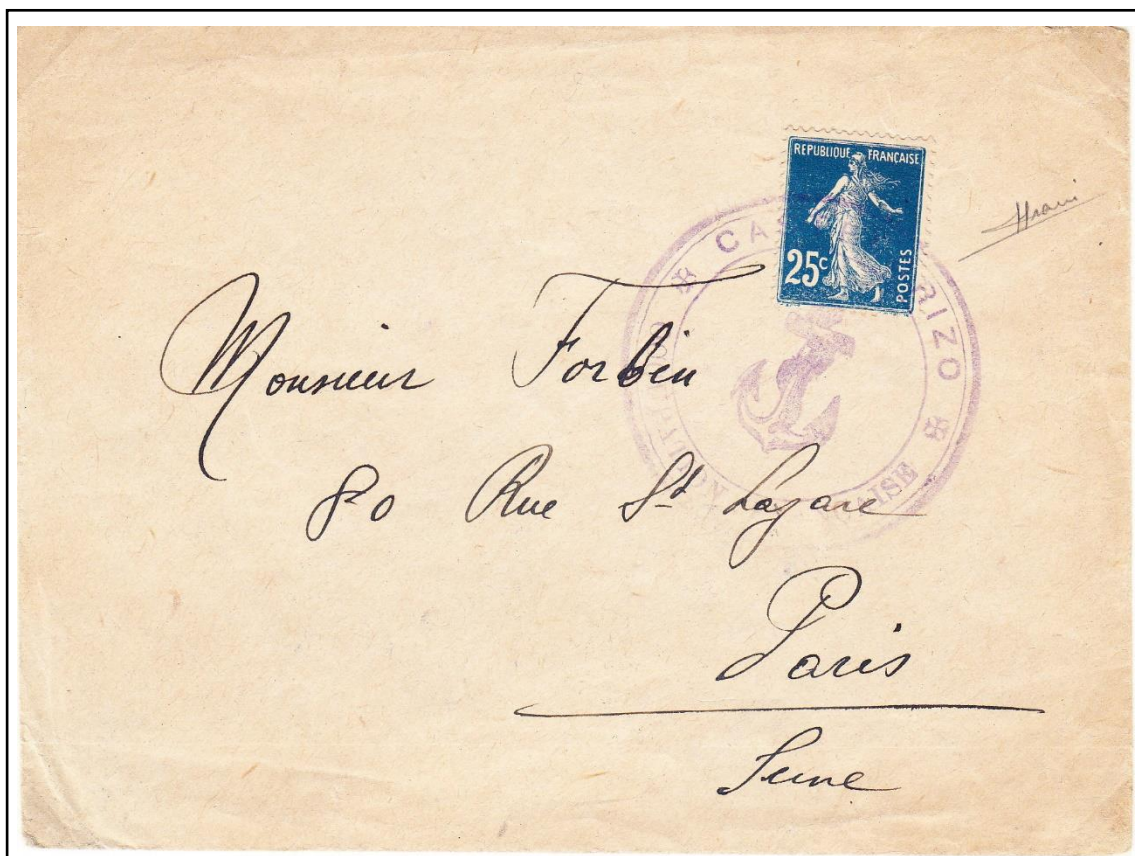 REPUBLIQUE FRANÇAISE
25c
POSTES
Monsieur Forbin
80 Rue St Lazare
Paris
Seine